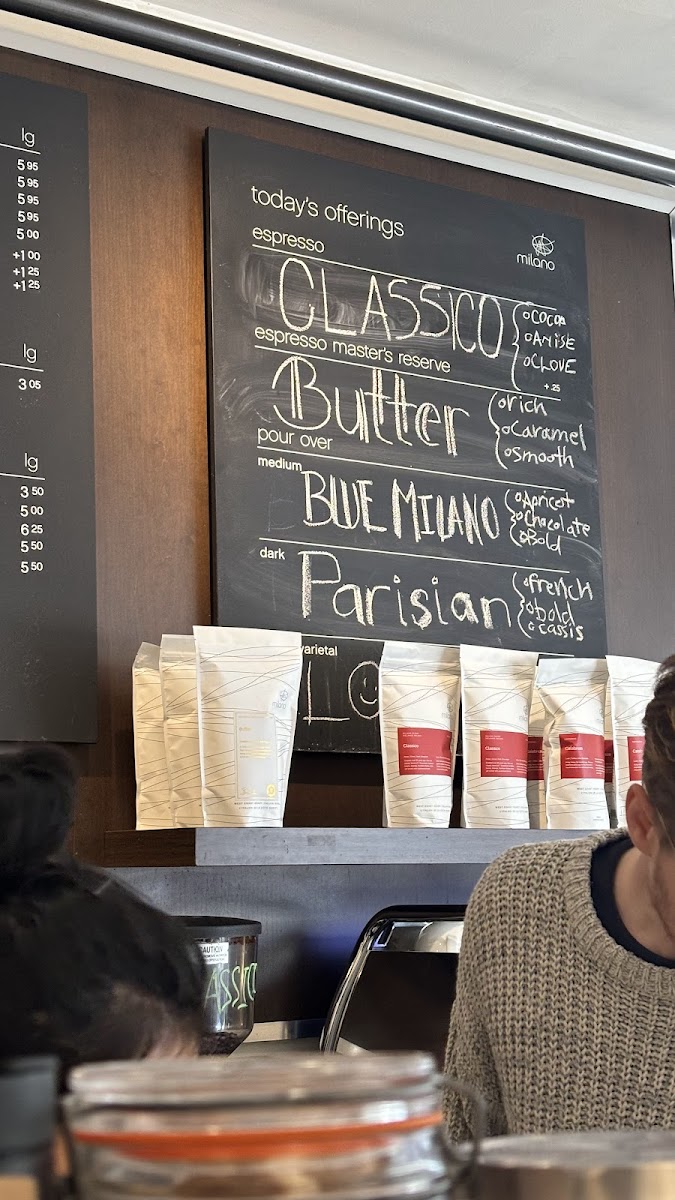 lg
5 95
5 95
5 95
5 95
5 00
+1 00
+1 25
+1 25
lg
3 05
lg
3 50
5 00
6 25
5 50
5 50
today's offerings
milano
espresso
CLASSICO
COCOA
ANISE
CLOVE
+.25
espresso master's reserve
Butter
rich
Caramel
Smooth
pour over
medium
BLUE MILANO
Apricot
Chocolate
Bold
dark
Parisian
french
bold
cassis
varietal
LO
milano
Butter
Classico
Classico
CAUTION
ASSIC